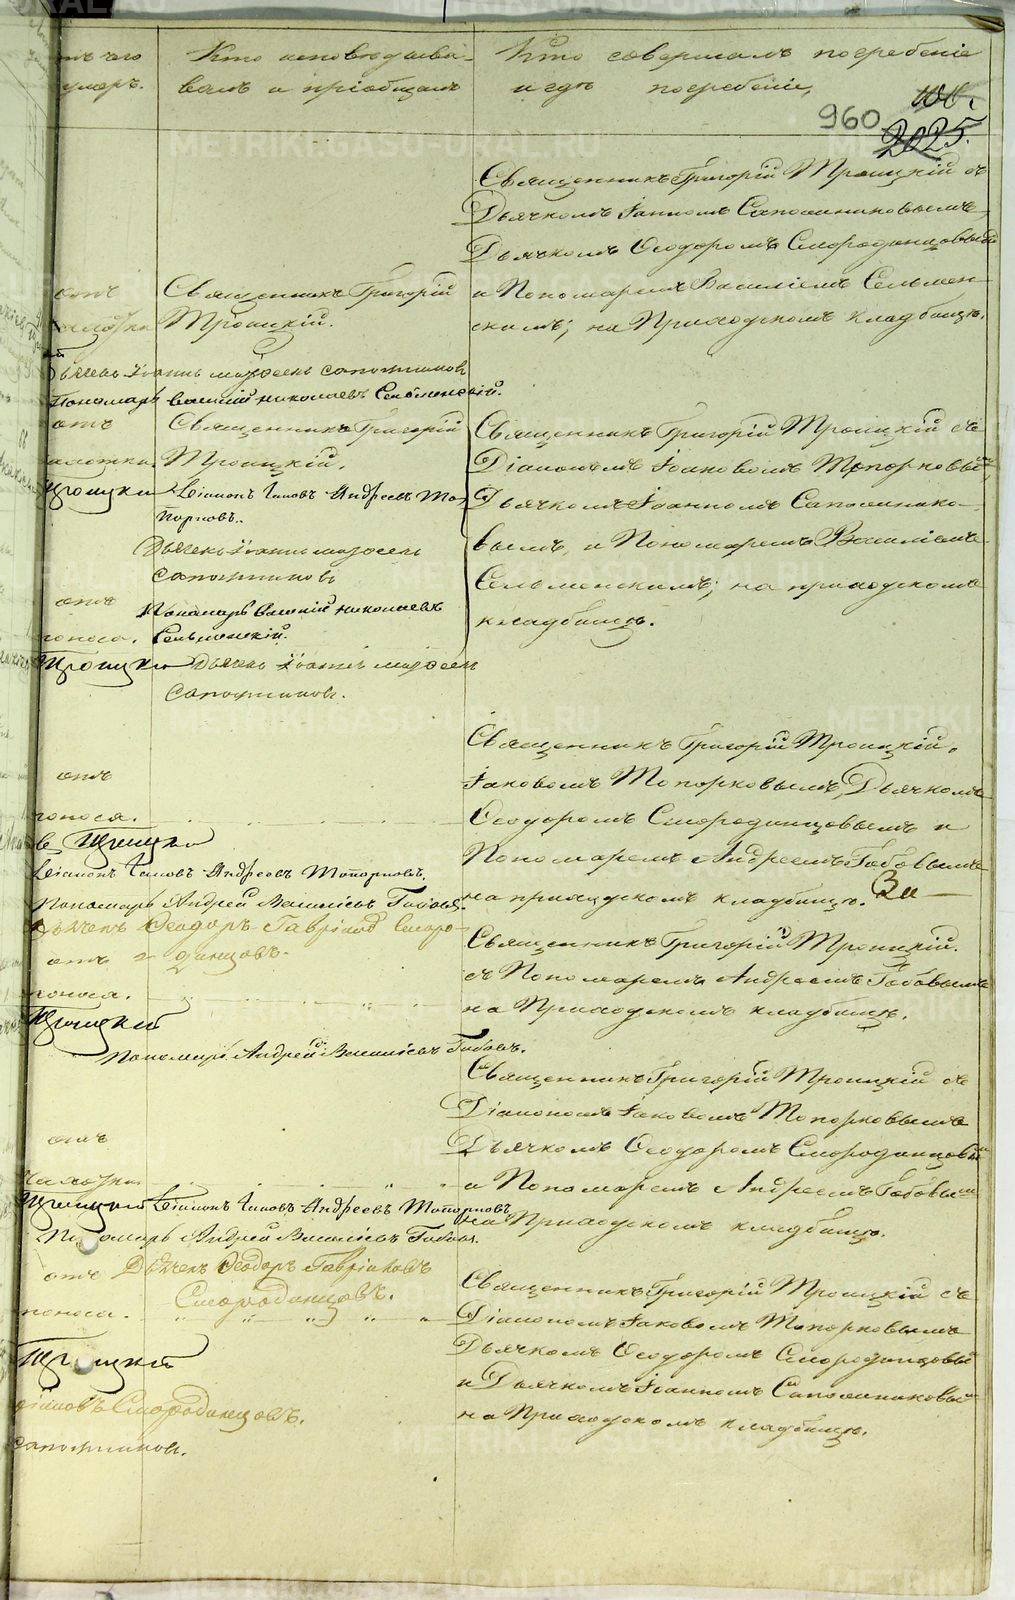 отъ чего
умеръ.
Кто исповѣдывы-
валъ и пріобщалъ
Кто совершалъ погребеніе
и гдѣ погребены,
960
2025.
Священникъ Григорій Троицкій съ
Дьячкомъ Іанномъ Сапожниковымъ
Дьячкомъ Ѳеодоромъ Смородинцовымъ
и Пономаремъ Василіемъ Сельмен-
скимъ; на Приходскомъ кладбищѣ.
отъ
Священникъ Григорій
Троицкій.
Дьячекъ Іоаннъ Моѵсеевъ Сапожниковъ
Пономарь Василій Николаевъ Сельменскій.
отъ
Священникъ Григорій
Троицкій.
Троицкій
Діаконъ Іаковъ Андреевъ То-
порковъ.
Дьячекъ Іоаннъ Моѵсеевъ
Сапожниковъ
Пономарь Василій Николаевъ
Сельменскій.
Священникъ Григорій Троицкій съ
Діакономъ Іаковомъ Топорковымъ,
Дьячкомъ Іоанномъ Сапожнико-
вымъ, и Пономаремъ Василіемъ
Сельменскимъ; на приходскомъ
кладбищѣ.
отъ
поноса.
Троицкій
Дьячекъ Іоаннъ Моѵсеевъ
Сапожниковъ.
Священникъ Григорій Троицкій.
Іаковомъ Топорковымъ, Дьячкомъ
Ѳеодоромъ Смородинцовымъ и
Пономаремъ Андреемъ Габовымъ
на приходскомъ кладбищѣ.
отъ
поноса.
Троицкій
Діаконъ Іаковъ Андреевъ Топорковъ.
Пономарь Андрей Васильевъ Габовъ.
Дьячекъ Ѳеодоръ Гавріиловъ Сморо-
динцовъ.
отъ
поноса.
Священникъ Григорій Троицкій.
съ Пономаремъ Андреемъ Габовымъ
на Приходскомъ кладбищѣ.
Троицкій
Пономарь Андрей Васильевъ Габовъ.
Священникъ Григорій Троицкій съ
Діакономъ Іаковомъ Топорковымъ
Дьячкомъ Ѳеодоромъ Смородинцовым
и Пономаремъ Андреемъ Габовымъ
на Приходскомъ кладбищѣ.
отъ
чахотки
Троицкій Діаконъ Іаковъ Андреевъ Топорковъ
Пономарь Андрей Васильевъ Габовъ.
отъ
Дьячекъ Ѳеодоръ Гавріиловъ
Смородинцовъ.
поноса.
Священникъ Григорій Троицкій съ
Діакономъ Іаковомъ Топорковымъ
Дьячкомъ Ѳеодоромъ Смородинцовы
и Дьячкомъ Іоанномъ Сапожниковы
на Приходскомъ кладбищѣ.
Троицкій
Смородинцовъ.
Сапожниковъ.
METRIKI.GASO-URAL.RU